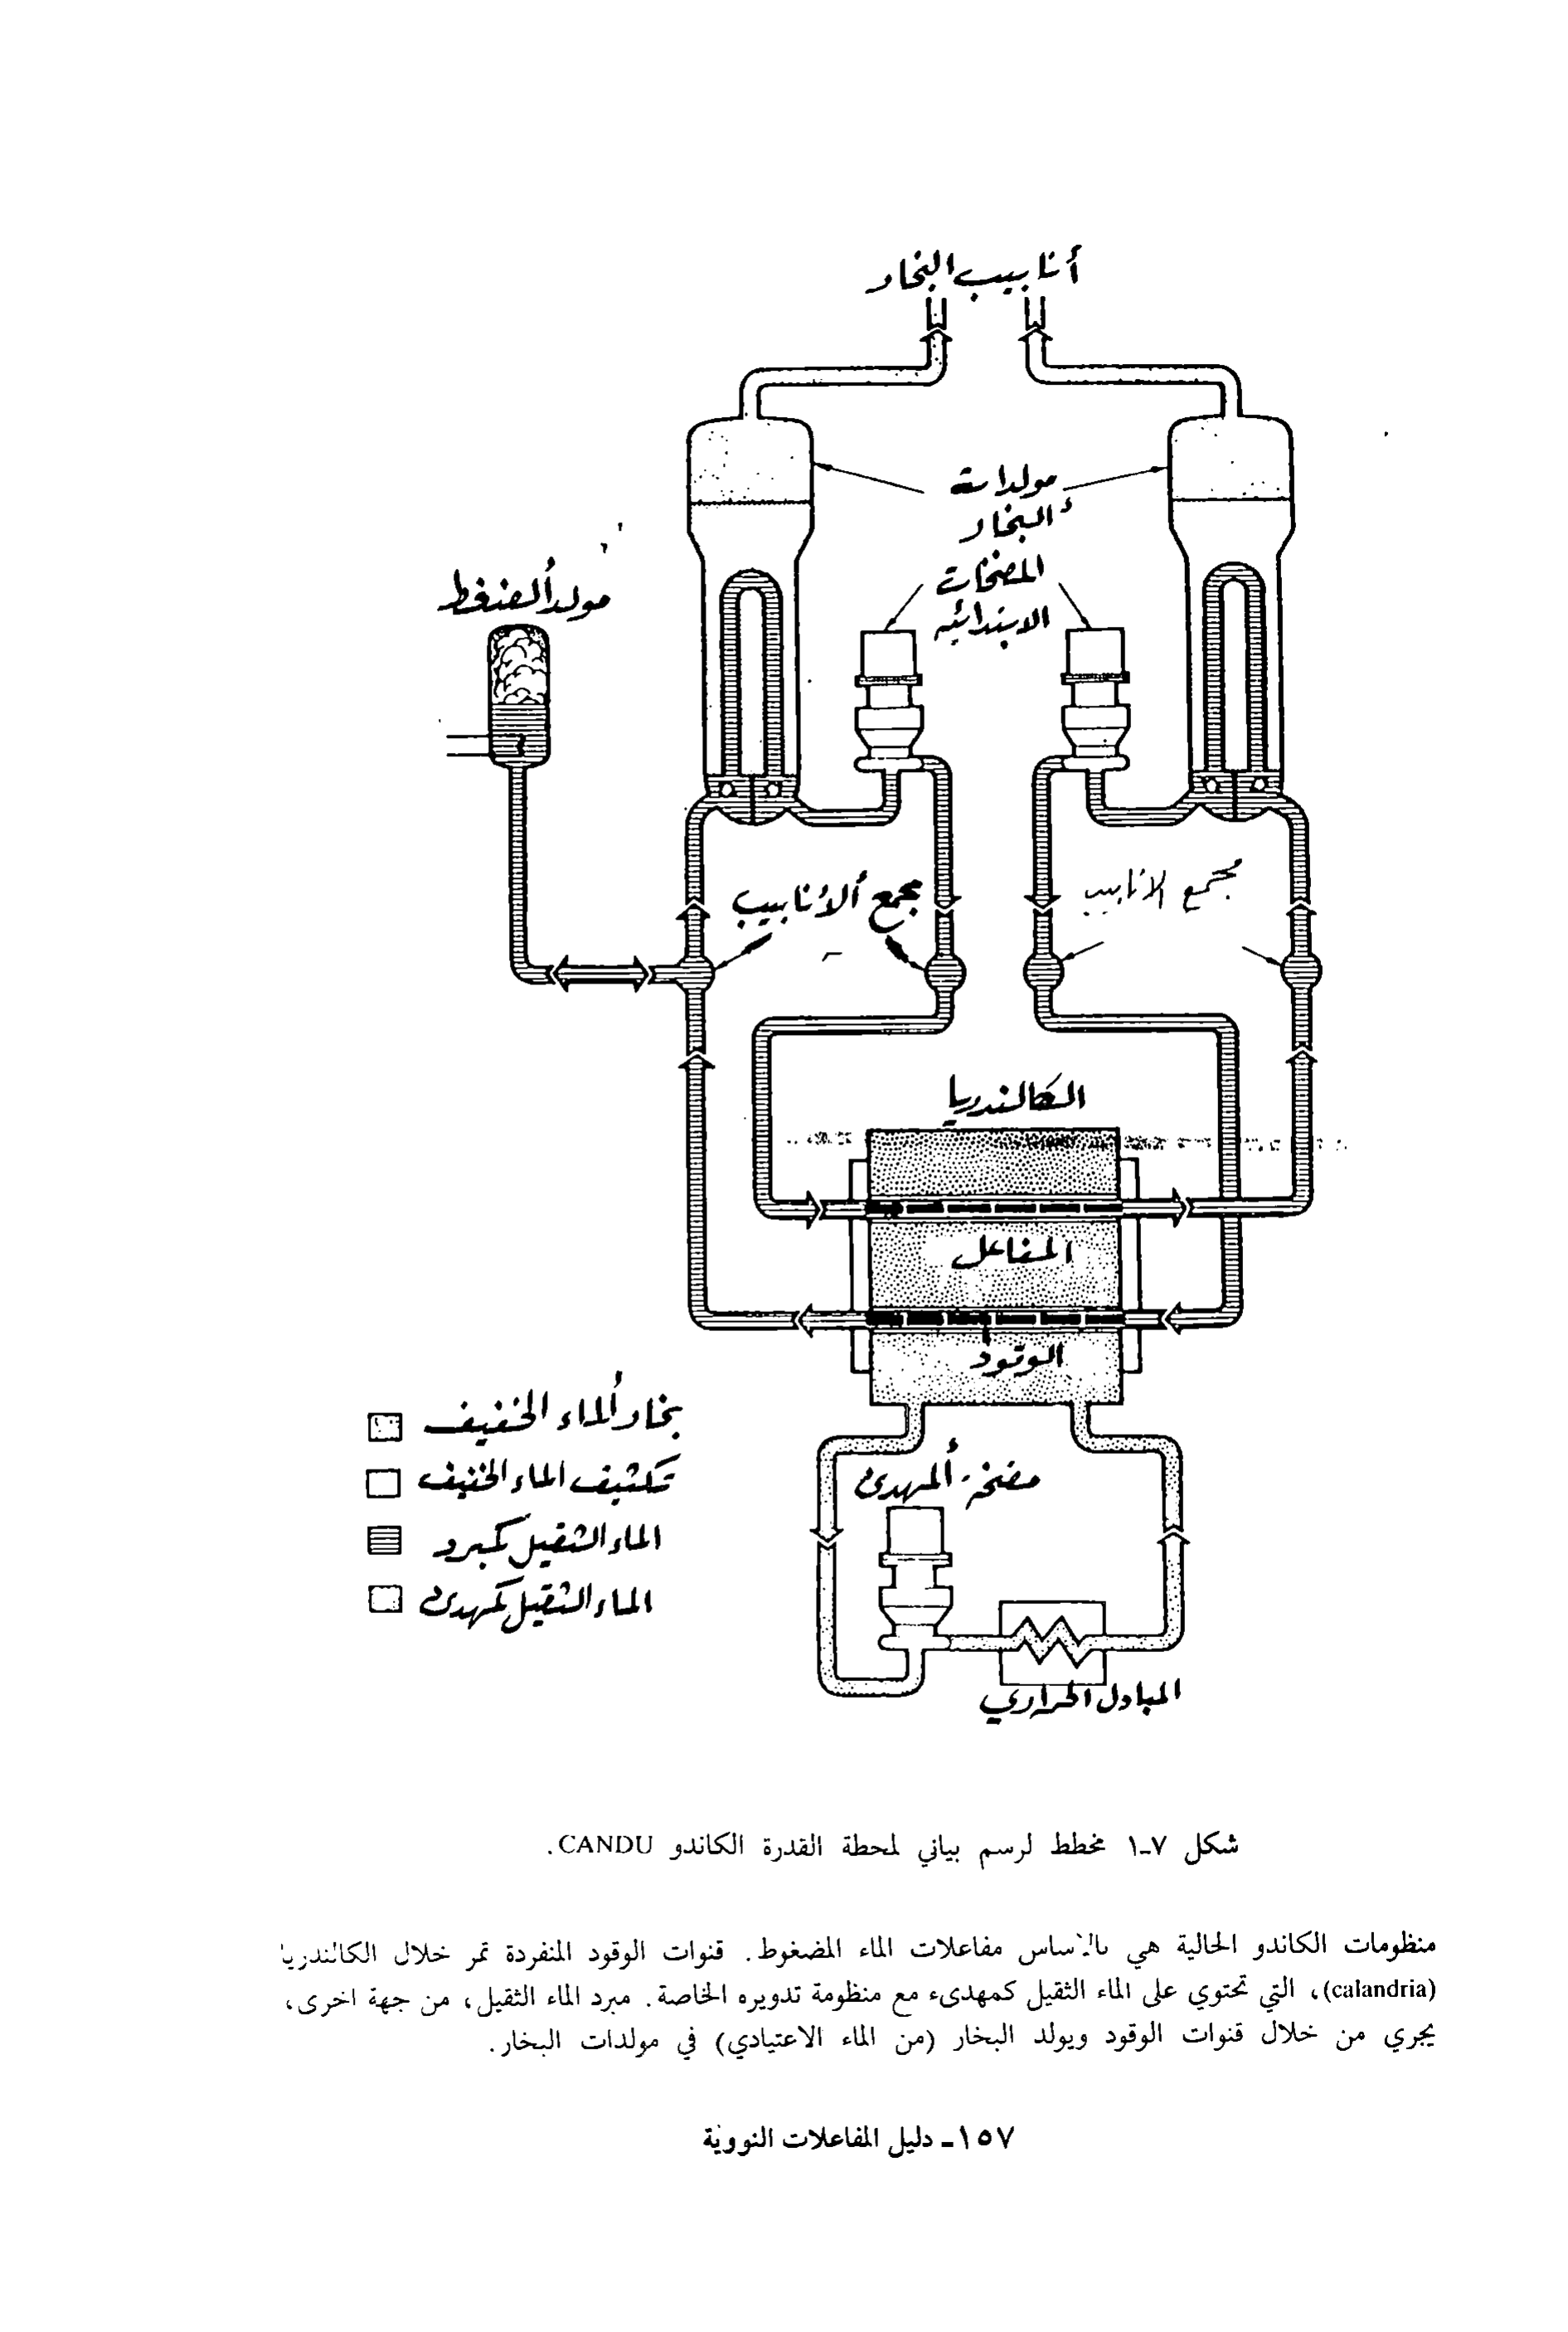 أنابيب البخار
مولدات
ألبخار
المضخات
الابتدائيه
مولد ألضغط
مجمع ألأنابيب
مجمع الانابيب
الكالندريا
المفاعل
الوقود
بخار ألماء الخفيف
تكثيف الماء الخفيف
الماء الثقيل كمبرد
الماء الثقيل كمهدئ
مضخة ألمهدئ
المبادل الحراري
شكل ٧-١ مخطط لرسم بياني لمحطة القدرة الكاندو CANDU.
منظومات الكاندو الحالية هي بالاساس مفاعلات الماء المضغوط. قنوات الوقود المنفردة تمر خلال الكالندريا
(calandria)، التي تحتوي على الماء الثقيل كمهدىء مع منظومة تدويره الخاصة. مبرد الماء الثقيل، من جهة اخرى،
يجري من خلال قنوات الوقود ويولد البخار (من الماء الاعتيادي) في مولدات البخار.
١٥٧- دليل المفاعلات النووية